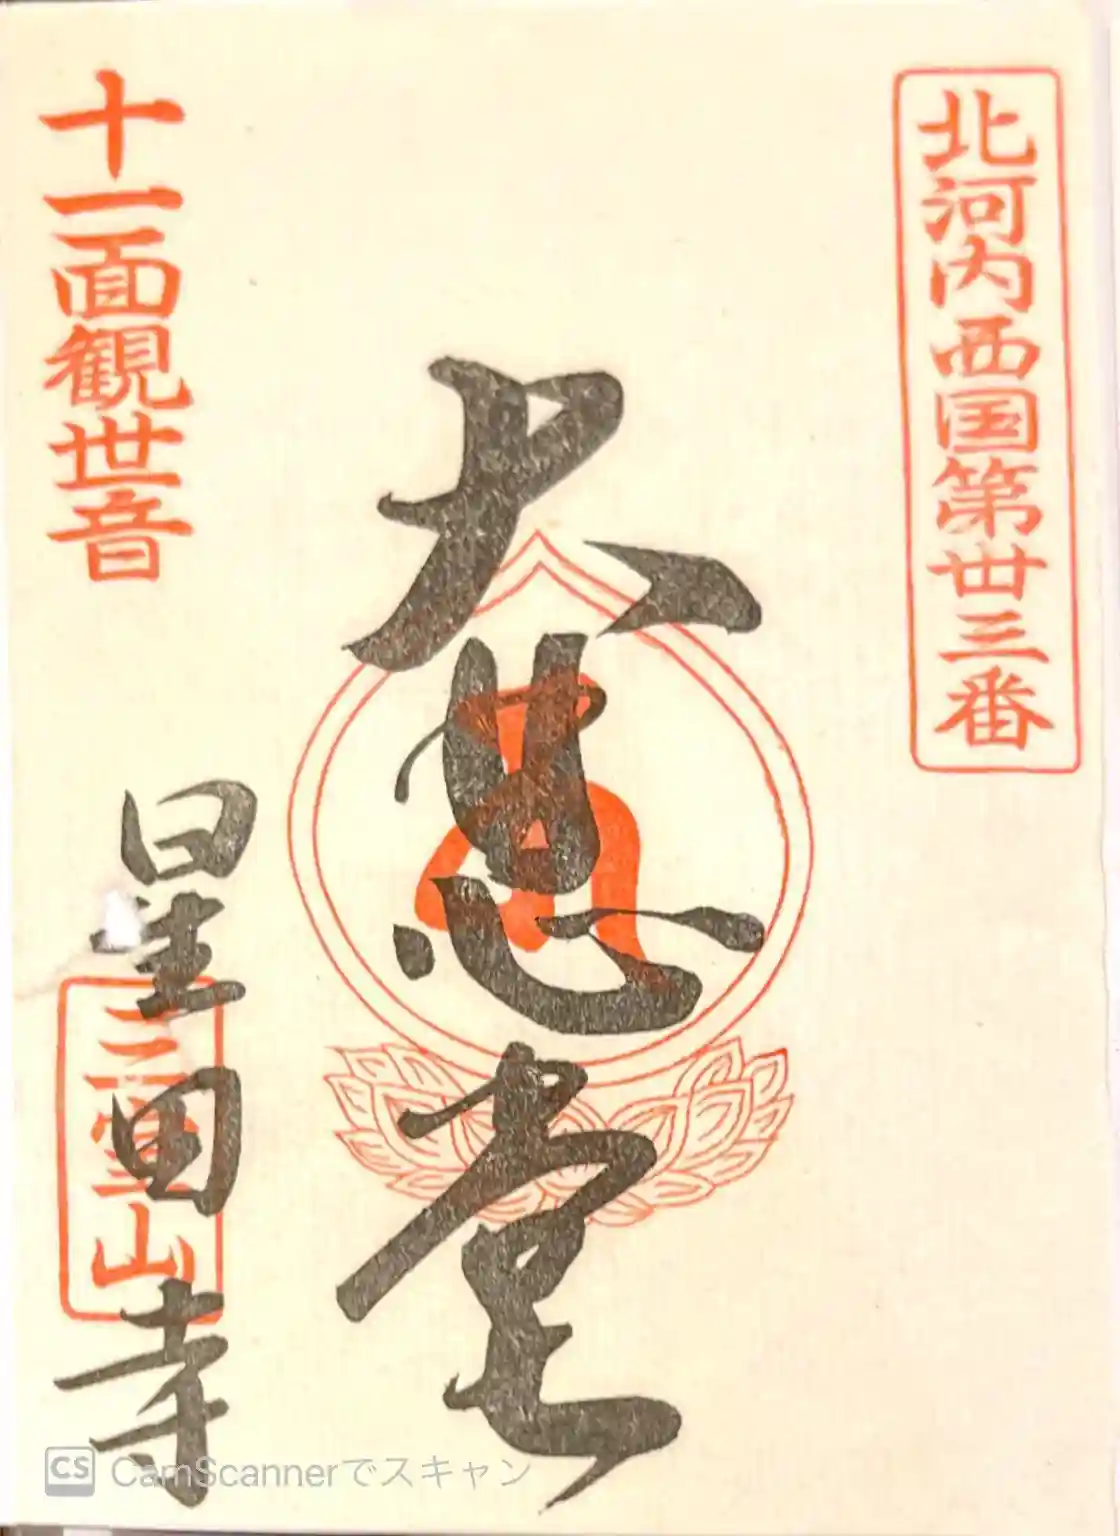 北河内西国第丗三番
大悲堂
十一面観世音
星田寺
CS CamScannerでスキャン